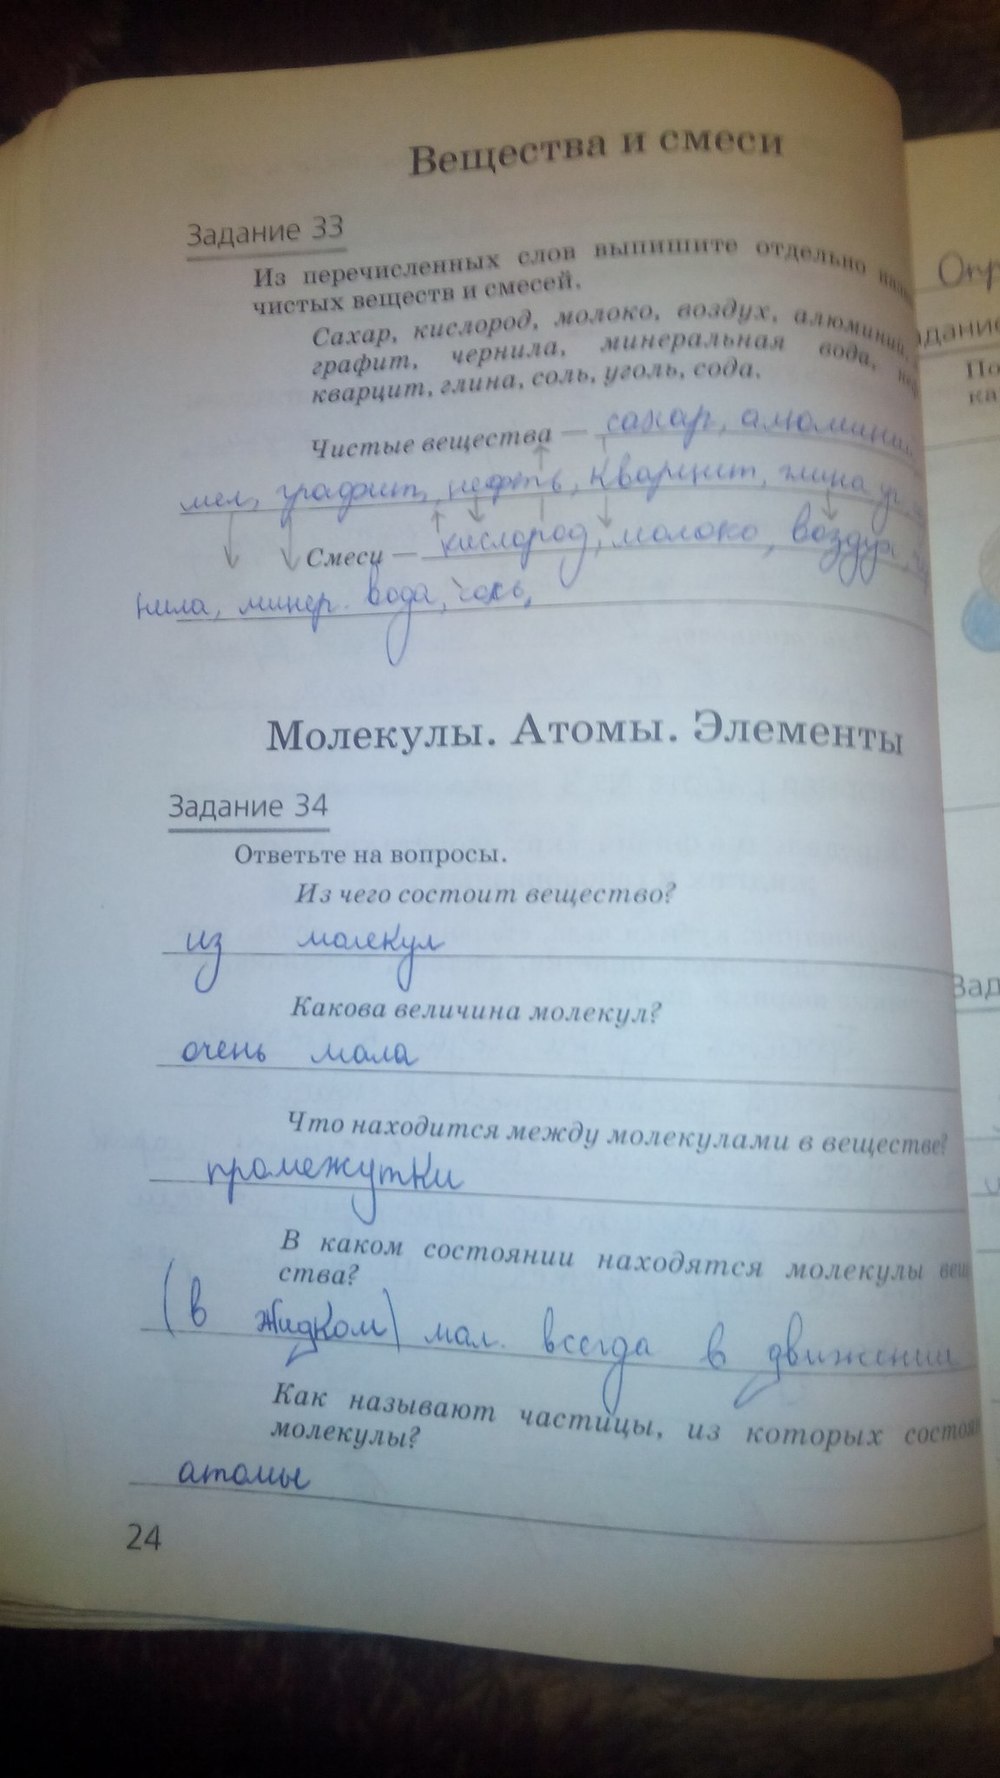 Вещества и смеси
Задание 33
Из перечисленных слов выпишите отдельно
чистых веществ и смесей.
Сахар, кислород, молоко, воздух, алюминий,
графит, чернила, минеральная вода,
кварцит, глина, соль, уголь, сода.
Чистые вещества — сахар, алюминий,
мел, графит, нефть, кварцит, глина
Смеси — кислород, молоко, воздух,
нила, минер. вода,
Молекулы. Атомы. Элементы
Задание 34
Ответьте на вопросы.
Из чего состоит вещество?
из молекул
Какова величина молекул?
очень мала
Что находится между молекулами в веществе?
промежутки
В каком состоянии находятся молекулы вещ
ства?
(в жидком) мол. всегда в движении
Как называют частицы, из которых состоя
молекулы?
атомы
24
Задание
По
ка
Зад